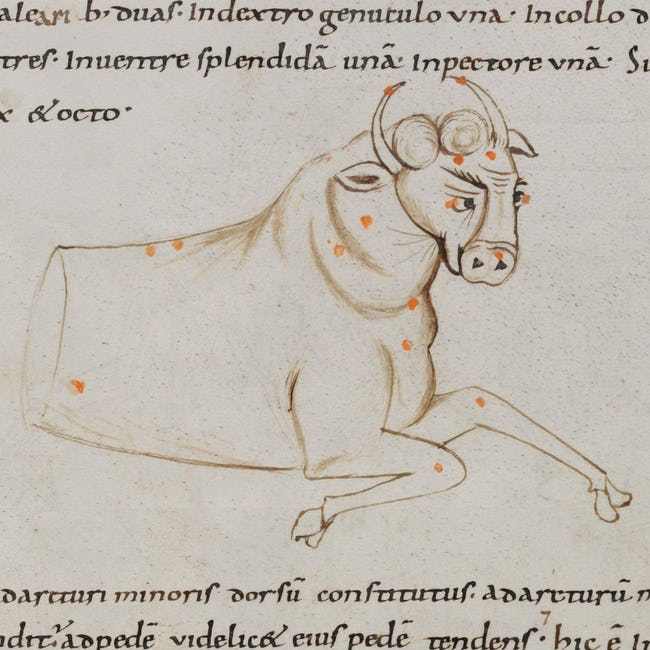 aleari b; duas· In dextro genuculo una· In collo d
tres· In ventre splendidā unā· In pectore vnā· Su
x & octo·
darcturi minoris dorsū constitutus· ad arcturū m
ndit· ad pedē videlic& eius pedē tendens· hic ē In
7